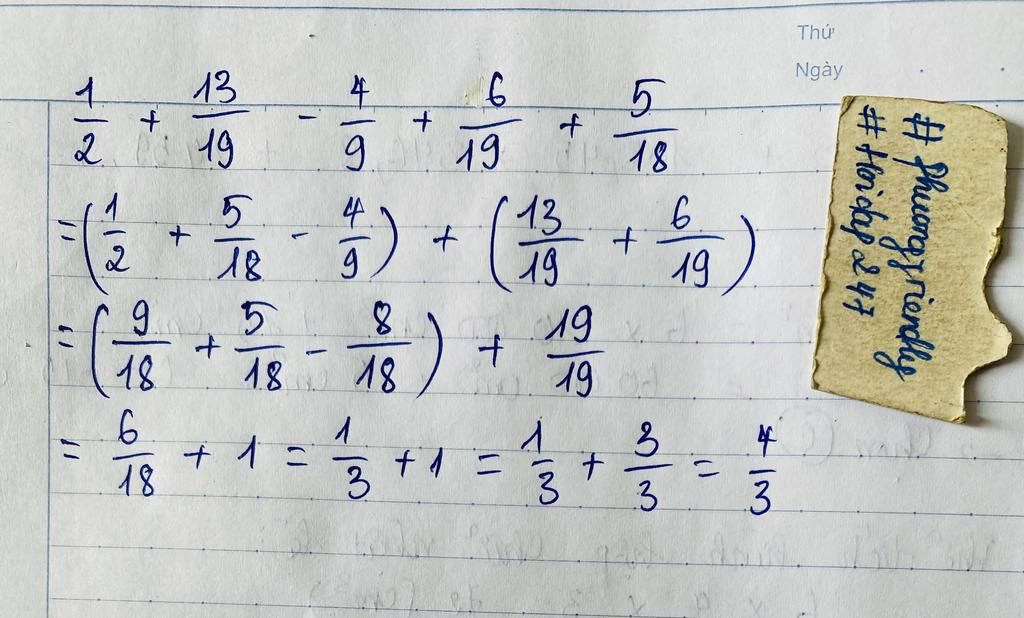 Thứ
Ngày
1/2 + 13/19 - 4/9 + 6/19 + 5/18
= (1/2 + 5/18 - 4/9) + (13/19 + 6/19)
= (9/18 + 5/18 - 8/18) + 19/19
= 6/18 + 1 = 1/3 + 1 = 1/3 + 3/3 = 4/3
# phuongfriendly
# Hoidap247